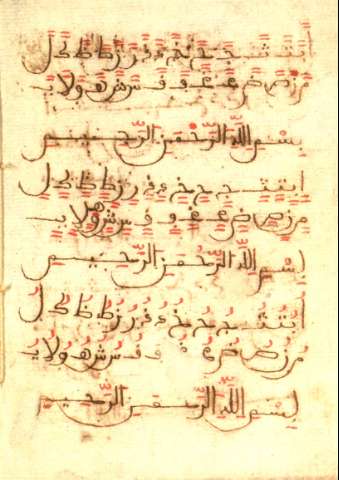 ا ب ت ث ج ح خ د ذ ر ز ط ظ ك ل
م ن ص ض ع غ ف ق س ش ه و لا ي
بسم الله الرحمن الرحيم
ا ب ت ث ج ح خ د ذ ر ز ط ظ ك ل
م ن ص ض ع غ ف ق س ش ه و لا ي
بسم الله الرحمن الرحيم
ا ب ت ث ج ح خ د ذ ر ز ط ظ ك ل
م ن ص ض ع ف ق س ش ه و لا ي
بسم الله الرحمن الرحيم